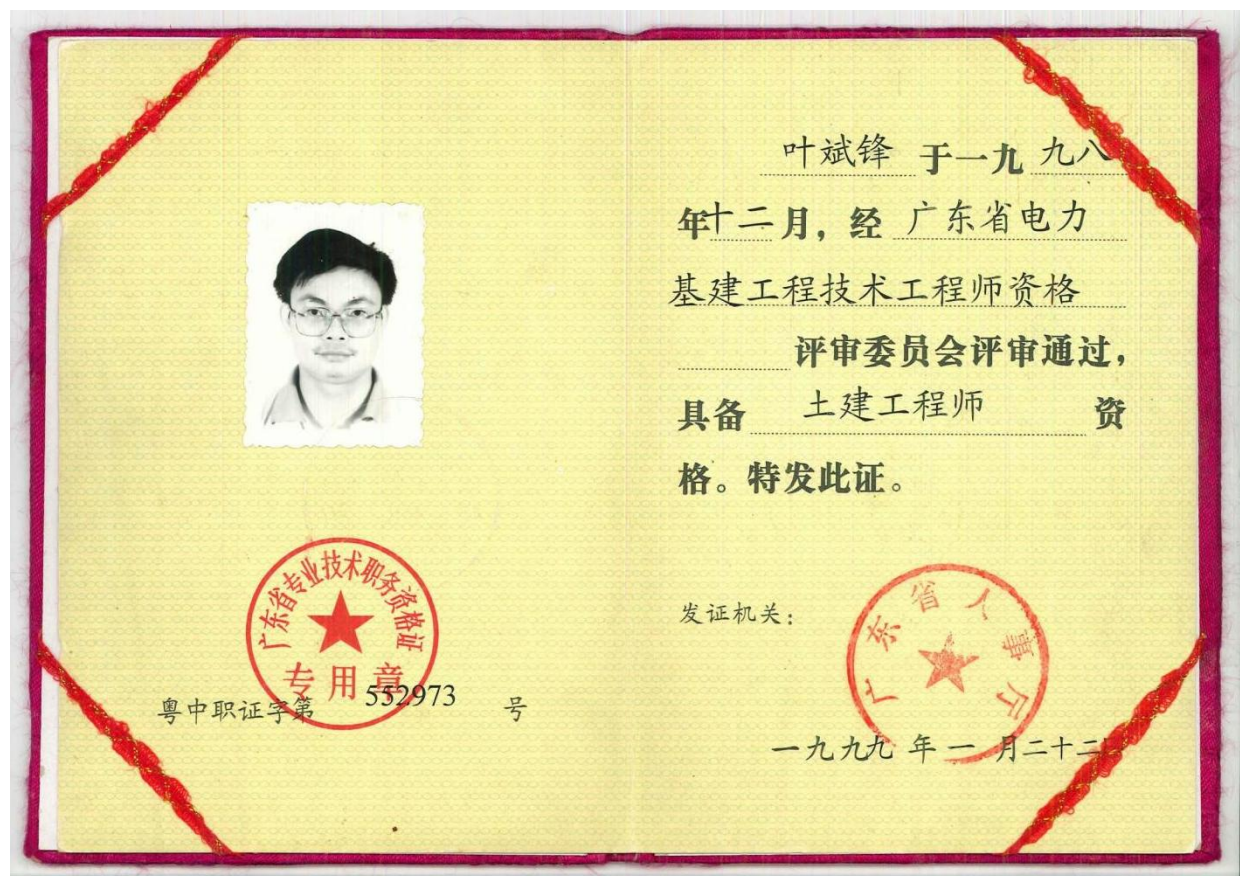 广东省专业技术职务资格证
专用章
粤中职证字第 552973 号
叶斌锋 于一九九八
年十二月，经 广东省电力
基建工程技术工程师资格
评审委员会评审通过，
具备 土建工程师 资
格。特发此证。
发证机关：
广东省人事厅
一九九九年一月二十二